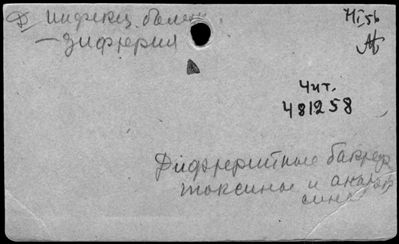 инфекц. болез
— дифтерия
Чит.
481258
Дифтеритные бактер
токсины и анаток
сины